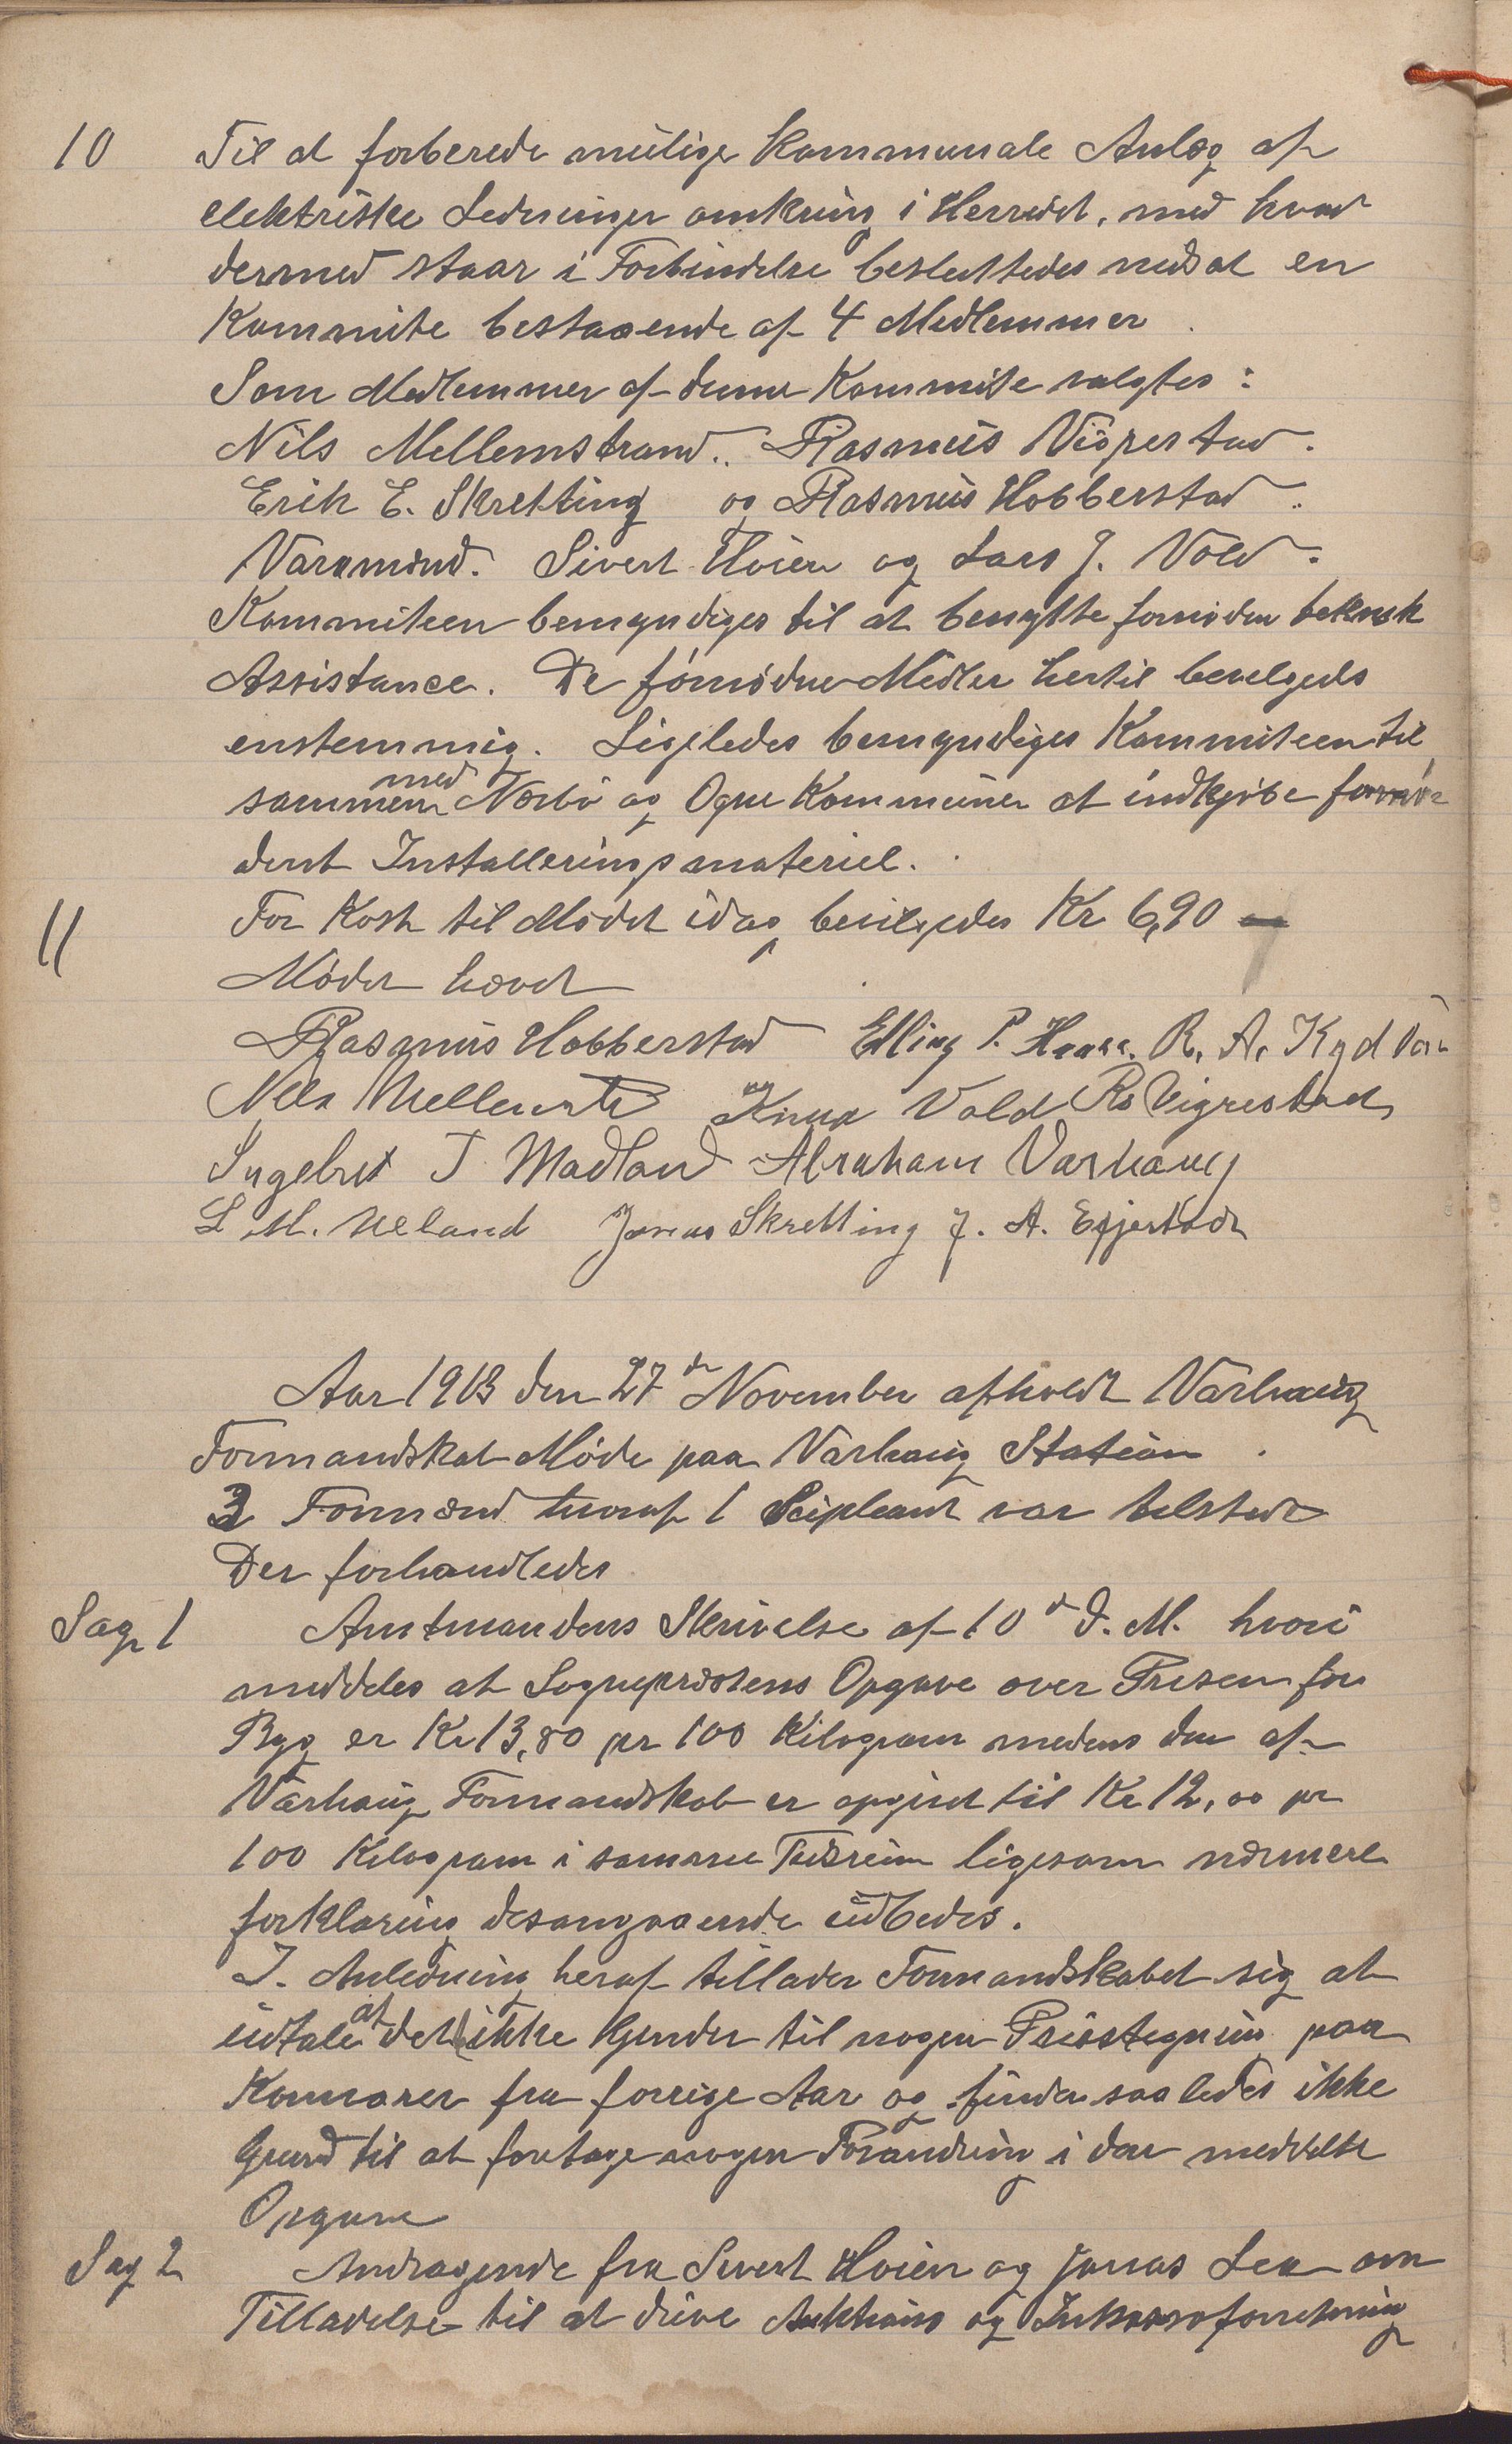 10 Til at forberede mulige Kommunale Anlæg af
elektriske Ledninger omkring i Herredet, med hvad
dermed staar i Forbindelse besluttedes nedsat en
Kommite bestaaende af 4 Medlemmer.
Som Medlemmer af denne Kommite valgtes:
Nils Mellemstrand. Rasmus Vigrestad.
Erik E. Skretting og Rasmus Hobberstad.
Varamænd. Sivert Høien og Lars J. Vold.
Kommiteen bemyndiges til at benytte fornøden teknsk
Assistance. De fornødne Midler hertil bevilgeds
enstemmig. Ligeledes bemyndiges Kommiteen til
sammen med Nærbø og Ogne Kommuner at indkjøbe fornø-
dent Installeringsmateriel.
11 For Kost til Mødet idag bevilgedes Kr 6,90
Mødet hævet
Rasmus Hobberstad Elling P. Haar. R. A. Kydland
Nils Mellemstr Knud Vold Rs Vigrestad
Ingebret T Madland Abraham Varhaug
L M. Ueland Jonas Skretting J. A. Egjestad
Aar 1913 den 27de November afholdt Varhaug
Formandskab Møde paa Varhaug Station.
3 Formænd hvoraf 1 Suppleant var tilstede
Der forhandledes
Sag 1 Amtmandens Skrivelse af 10de d. M. hvori
meddeles at Sogneprestens Opgave over Prisen for
Byg er Kr 13,80 pr 100 Kilogram medens den af
Varhaug Formandskab er opgivet til Kr 12,00 pr
100 Kilogram i samme Tidsrum ligesom nærmere
forklaring desangaaende udbedes.
I. Anledning heraf tillader Formandskabet sig at
udtale at det ikke kjender til nogen Prisstegning paa
Kornvarer fra forrige Aar og finder saaledes ikke
Grund til at foretage nogen Forandring i den meddelte
Opgave
Sag 2 Andragende fra Sivert Høien og Jonas Lea om
Tilladelse til at drive Auktions og Inkassoforretning